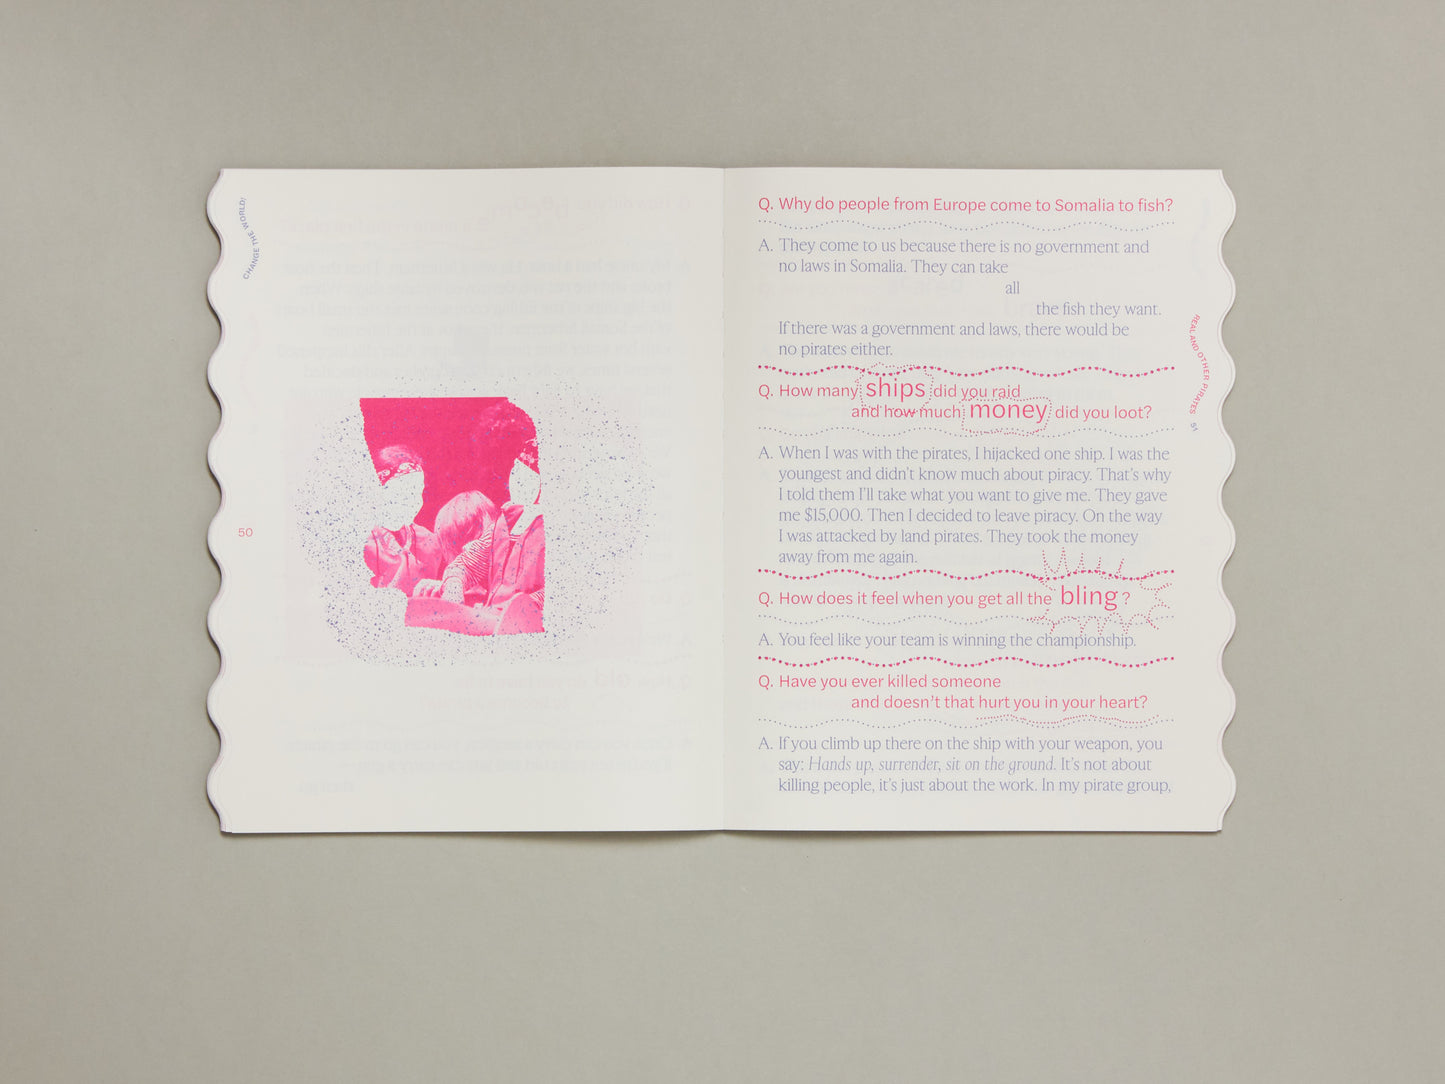 CHANGE THE WORLD!
50
Q. Why do people from Europe come to Somalia to fish?
A. They come to us because there is no government and
no laws in Somalia. They can take
all
the fish they want.
If there was a government and laws, there would be
no pirates either.
Q. How many ships did you raid
and how much money did you loot?
A. When I was with the pirates, I hijacked one ship. I was the
youngest and didn’t know much about piracy. That’s why
I told them I’ll take what you want to give me. They gave
me $15,000. Then I decided to leave piracy. On the way
I was attacked by land pirates. They took the money
away from me again.
Q. How does it feel when you get all the bling?
A. You feel like your team is winning the championship.
Q. Have you ever killed someone
and doesn’t that hurt you in your heart?
A. If you climb up there on the ship with your weapon, you
say: Hands up, surrender, sit on the ground. It’s not about
killing people, it’s just about the work. In my pirate group,
REAL AND OTHER PIRATES
51